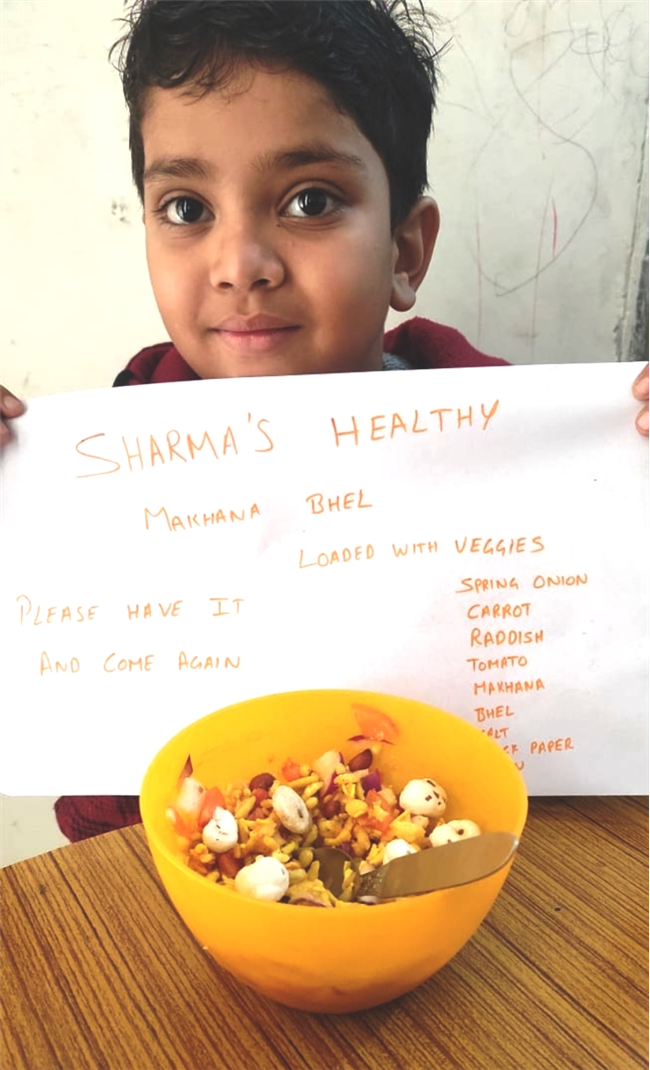 SHARMA'S HEALTHY
MAKHANA BHEL
LOADED WITH VEGGIES
PLEASE HAVE IT
AND COME AGAIN
SPRING ONION
CARROT
RADDISH
TOMATO
MAKHANA
BHEL
PAPER